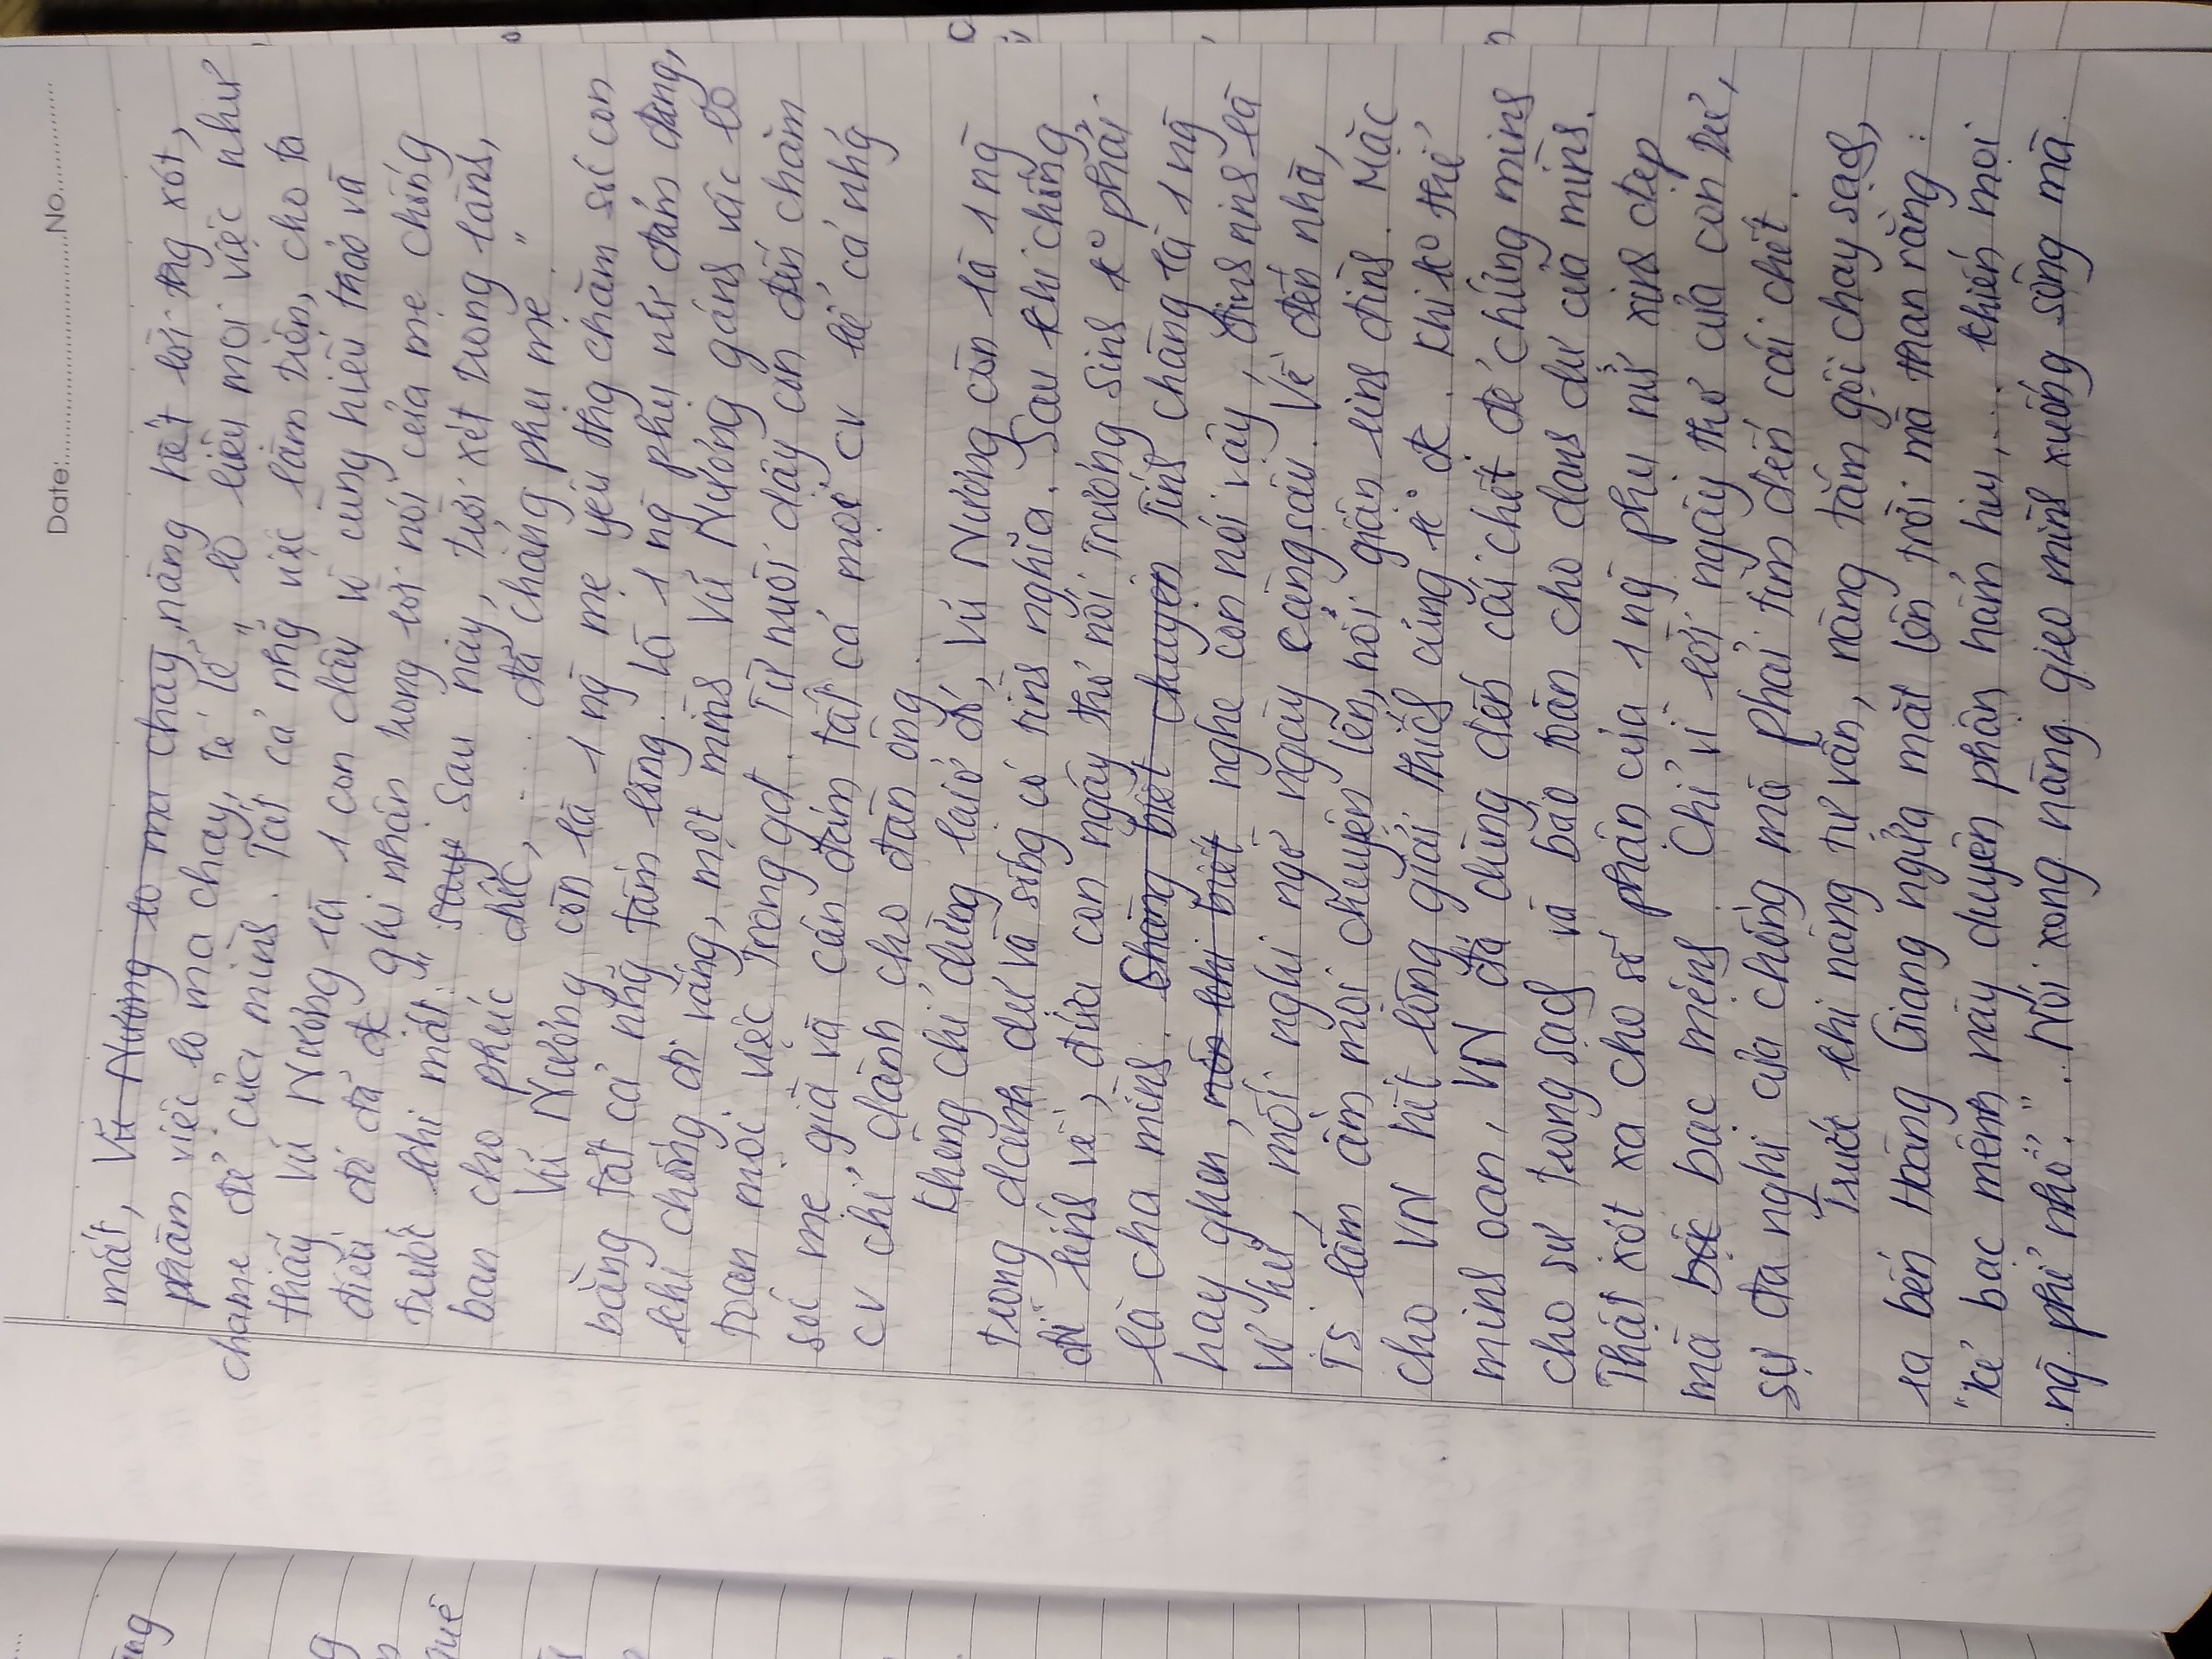 Date:..................No...............
mất, Vũ Nương lo ma chay, nàng hết lời thg xót,
phàm việc lo ma chay, tế lễ " lo liệu mọi việc như
chamẹ đẻ của mình". Tất cả nhg việc làm trên, cho ta
thấy Vũ Nương là 1 con dâu vô cùng hiếu thảo và
điều đó đã đc ghi nhận trong lời nói của mẹ chồng
trước khi mất: " sau Sau này, trời xét trong lành,
ban cho phúc đức, ... đã chẳng phụ mẹ"
Vũ Nương còn là 1 ng mẹ yêu thg chăm sóc con
bằng tất cả nhg tấm lòng. Là 1 ng phụ nữ đảm đang,
khi chồng đi vắng, một mình Vũ Nương gánh vác lo
toan mọi việc trong gđ. Từ nuôi dạy con đến chăm
sóc mẹ già và cán đám tất cả mọi cv kể cả nhg
cv chỉ dành cho đàn ông.
Không chỉ dừng lại ở đó, Vũ Nương còn là 1 ng
trong danh dự và sống có tình nghĩa. Sau khi chồng
đi lính về, đứa con ngây thơ nói Trương Sinh k° phải
là cha mình. Chàng biết chuyện Tính chàng là 1 ng
hay ghen, nên khi biết nghe con nói vậy, đinh ninh là
vợ hư, mối nghi ngờ ngày càng sâu. Về đến nhà,
TS làm ầm mọi chuyện lên, nổi giận linh đình. Mặc
cho VN hết lòng giải thích cũng k° đc. Khi ko thể
minh oan, VN đã dùng đến cái chết để chứng minh
cho sự trong sạch và bảo toàn cho danh dự của mình.
Thật xót xa cho số phận của 1 ng phụ nữ xinh đẹp
mà bạc bạc mệnh. Chỉ vì lời ngây thơ của con trẻ,
sự đa nghi của chồng mà phải tìm đến cái chết.
Trước khi nàng tự vẫn, nàng tắm gội chay sạch,
ra bến Hoàng Giang ngửa mặt lên trời mà than rằng:
"Kẻ bạc mệnh này duyên phận hẩm hiu,... khiến mọi
ng phỉ nhổ". Nói xong nàng gieo mình xuống sông mà